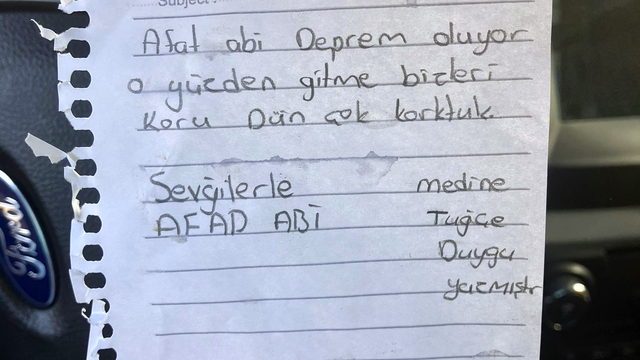 Subject:
Afat abi Deprem oluyor
o yüzden gitme bizleri
Koru Dün çok korktuk.
Sevğilerle medine
AFAD ABİ Tuğçe
Duygu
yazmıştır
Ford